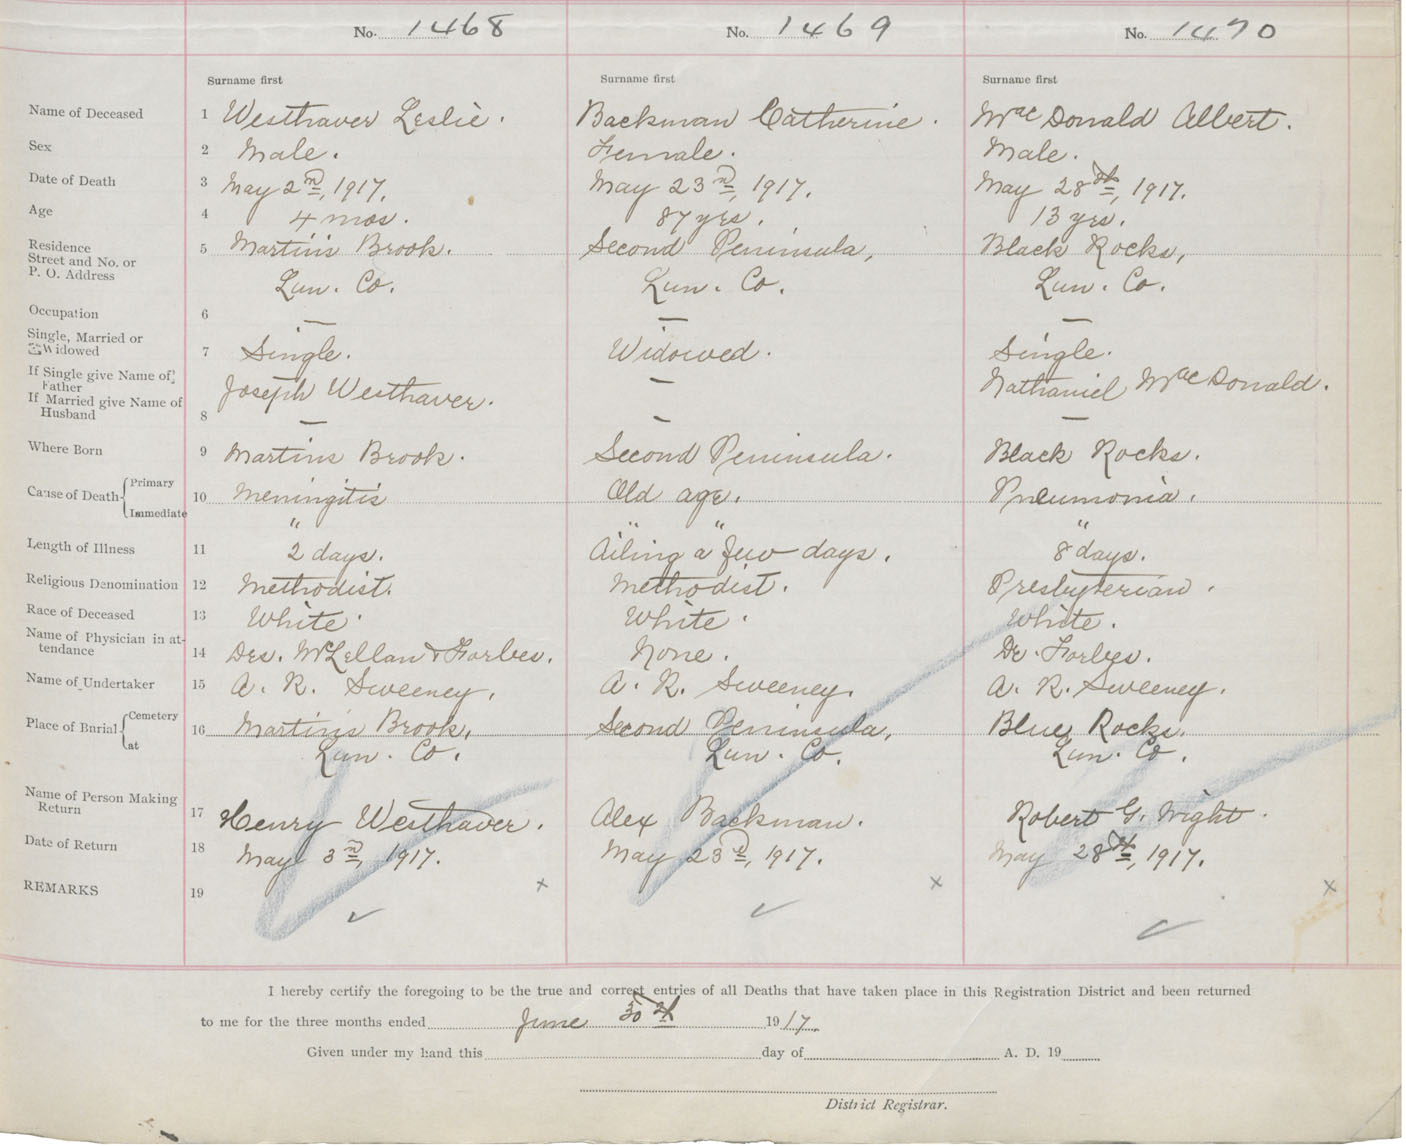 No. 1468 No. 1469 No. 1470
Surname first Surname first Surname first
Name of Deceased 1 Westhaver Leslie. Backman Catherine. MacDonald Albert.
Sex 2 Male. Female. Male.
Date of Death 3 May 2nd, 1917. May 23rd, 1917. May 28th, 1917.
Age 4 4 mos. 87 yrs. 13 yrs.
Residence
Street and No. or
P. O. Address 5 Martin's Brook. Second Peninsula, Black Rocks,
Lun. Co. Lun. Co. Lun. Co.
Occupation 6 — — —
Single, Married or
Widowed 7 Single. Widowed. Single.
If Single give Name of
Father Joseph Westhaver. — Nathaniel MacDonald.
If Married give Name of
Husband 8 — — —
Where Born 9 Martins Brook. Second Peninsula. Black Rocks.
Cause of Death { Primary 10 Meningitis Old age. Pneumonia.
Immediate " " " "
Length of Illness 11 2 days. Ailing a few days. 8 days.
Religious Denomination 12 Methodist. Methodist. Presbyterian.
Race of Deceased 13 White. White. White.
Name of Physician in at-
tendance 14 Drs. McLellan & Forbes. None. Dr. Forbes.
Name of Undertaker 15 A. R. Sweeney. A. R. Sweeney. A. R. Sweeney.
Place of Burial { Cemetery
at 16 Martin's Brook, Second Peninsula, Blue Rocks.
Lun. Co. Lun. Co. Lun. Co.
Name of Person Making
Return 17 Henry Westhaver. Alex Backman. Robert G. Wight.
Date of Return 18 May 3rd, 1917. May 23rd, 1917. May 28th, 1917.
REMARKS 19 x x x
I hereby certify the foregoing to be the true and correct entries of all Deaths that have taken place in this Registration District and been returned
to me for the three months ended June 30th 1917.
Given under my hand this day of A. D. 19
District Registrar.